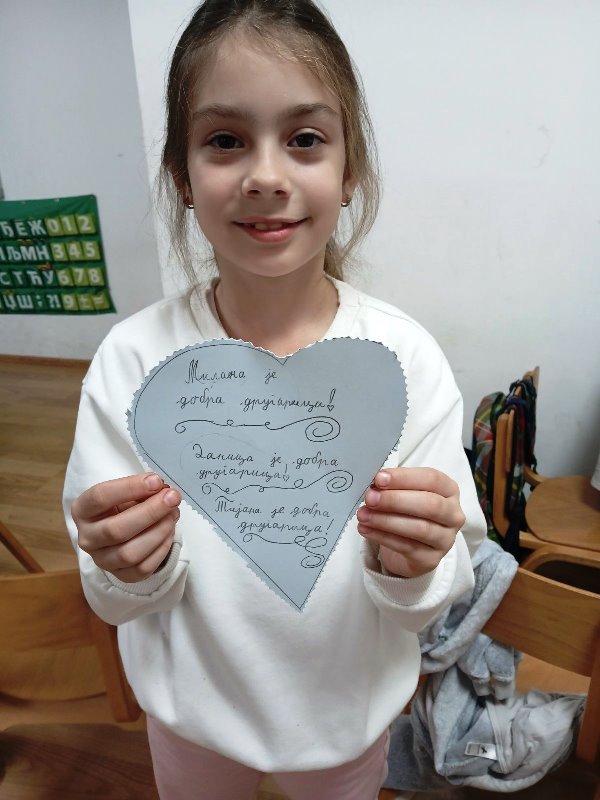 ЂЕЖ012
ЉМН345
СТЋУ678
ЏШ:?!9
Милана је
добра другарица!
Даница је добра
другарица!
Тијана је добра
другарица!